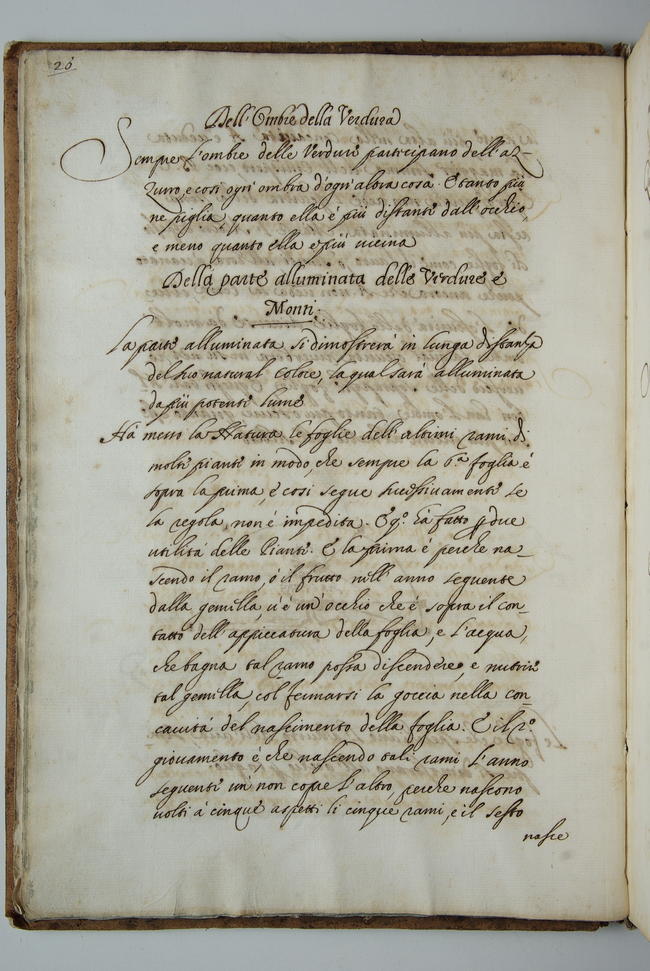 20
Dell'Ombre della Verdura
Sempre l'ombre delle Verdure participano dell'az-
zurro, e così ogni ombra d'ogni altra cosa. E tanto più
ne piglia, quanto ella è più distante dall'occhio,
e meno quanto ella è più vicina
Della parte alluminata delle Verdure e
Monti.
La parte alluminata si dimostrerà in lunga distanza
del suo natural Colore, la qual sarà alluminata
da più potente lume
Hà messo la Natura le foglie dell'ultimi rami di
molte piante in modo, che sempre la 6.ª foglia è
sopra la prima, e così segue successivamente se
la regola, non è impedita. E q.º hà fatto p due
utilità delle Piante. E la prima è perche na-
scendo il ramo, ò il frutto nell'anno seguente
dalla gemilla, v'è un'occhio che è sopra il con-
tatto dell'appiccatura della foglia, e l'acqua,
che bagna tal ramo possa discendere, e nutrire
tal gemilla, col fermarsi la goccia nella con-
cavità del nascimento della foglia. E il 2.º
giovamento è, che nascendo tali rami l'anno
seguente un'non copre l'altro, perche nascono
volti à cinque aspetti li cinque rami, e il sesto
nasce